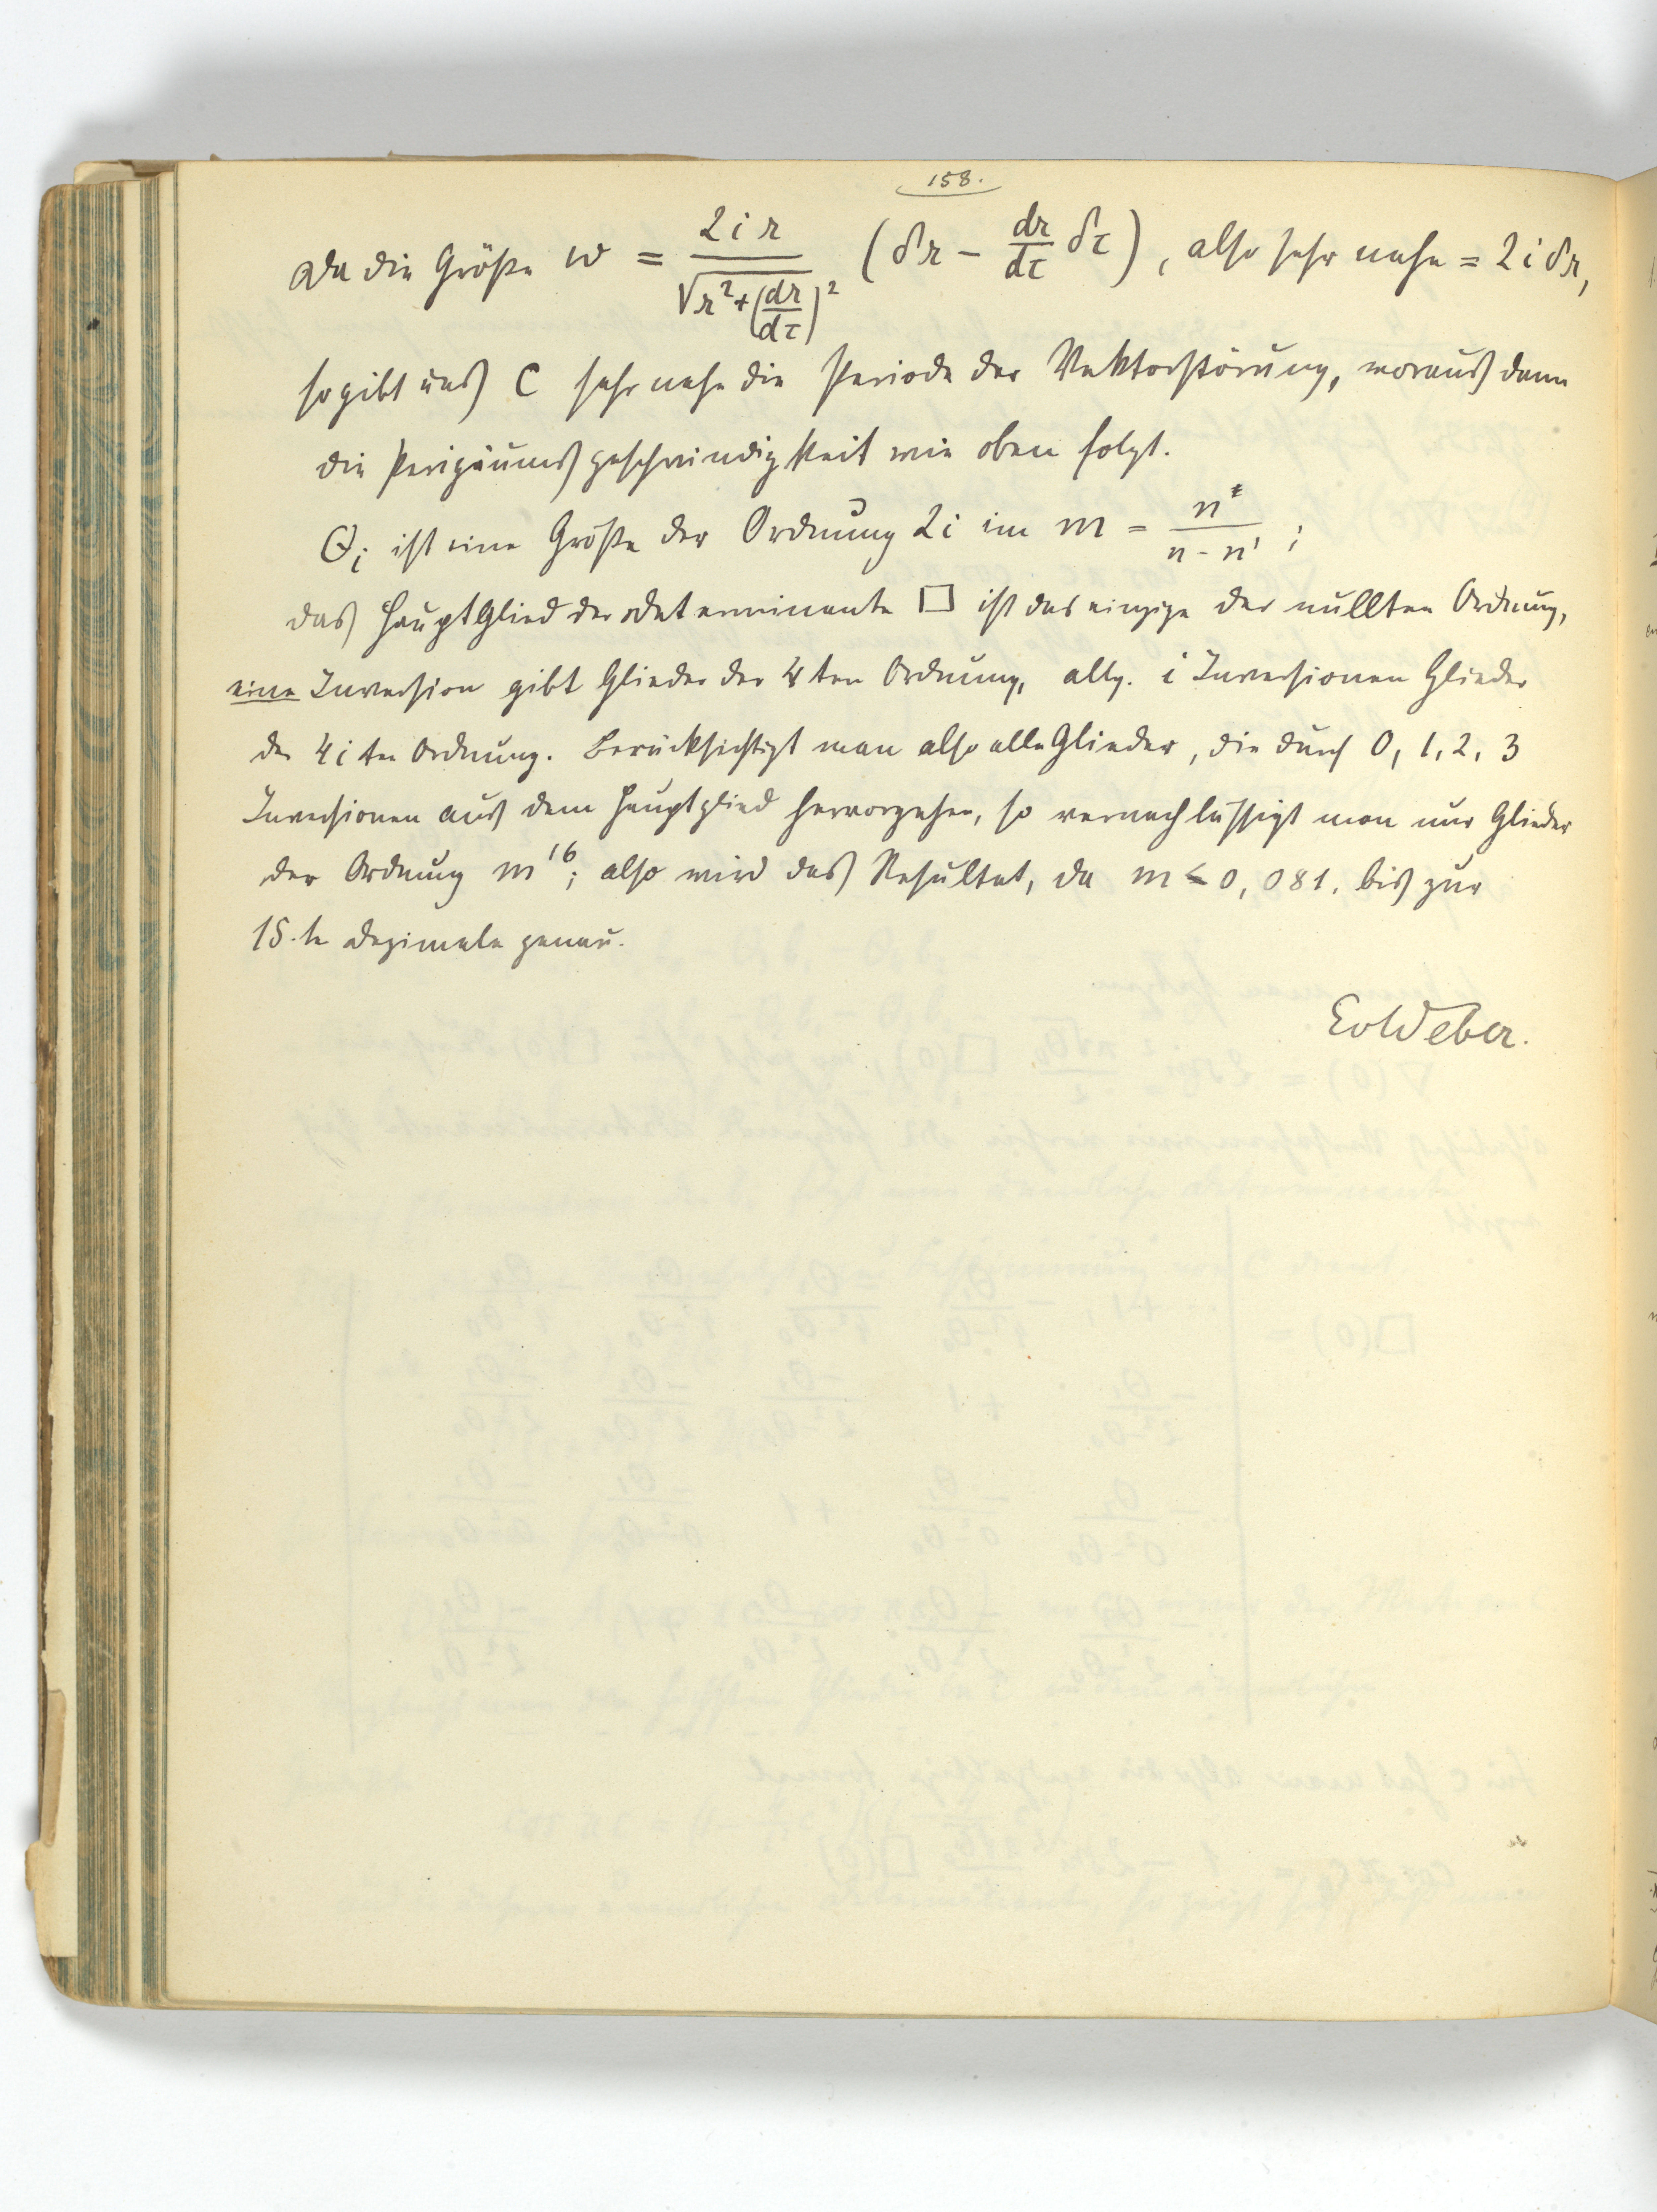 158.
Da die Größe w = 2ir / √(r² + (dr/dτ)²) (δr − dr/dτ δτ), also sehr nahe = 2iδr,
so gibt uns c sehr nahe die Periode der Vektorstörung, woraus dann
die Perigäumsgeschwindigkeit wie oben folgt.
Θi ist eine Größe der Ordnung 2i im m = n' / n − n' ;
das Hauptglied der Determinante □ ist das einzige der nullten Ordnung,
eine Inversion gibt Glieder der 4ten Ordnung, allg. i Inversionen Glieder
der 4i ten Ordnung. Berücksichtigt man also alle Glieder, die durch 0, 1, 2, 3
Inversionen aus dem Hauptglied hervorgehen, so vernachlässigt man nur Glieder
der Ordnung m¹⁶; also wird das Resultat, da m ≤ 0,081. bis zur
15.te Dezimale genau.
EvWeber.